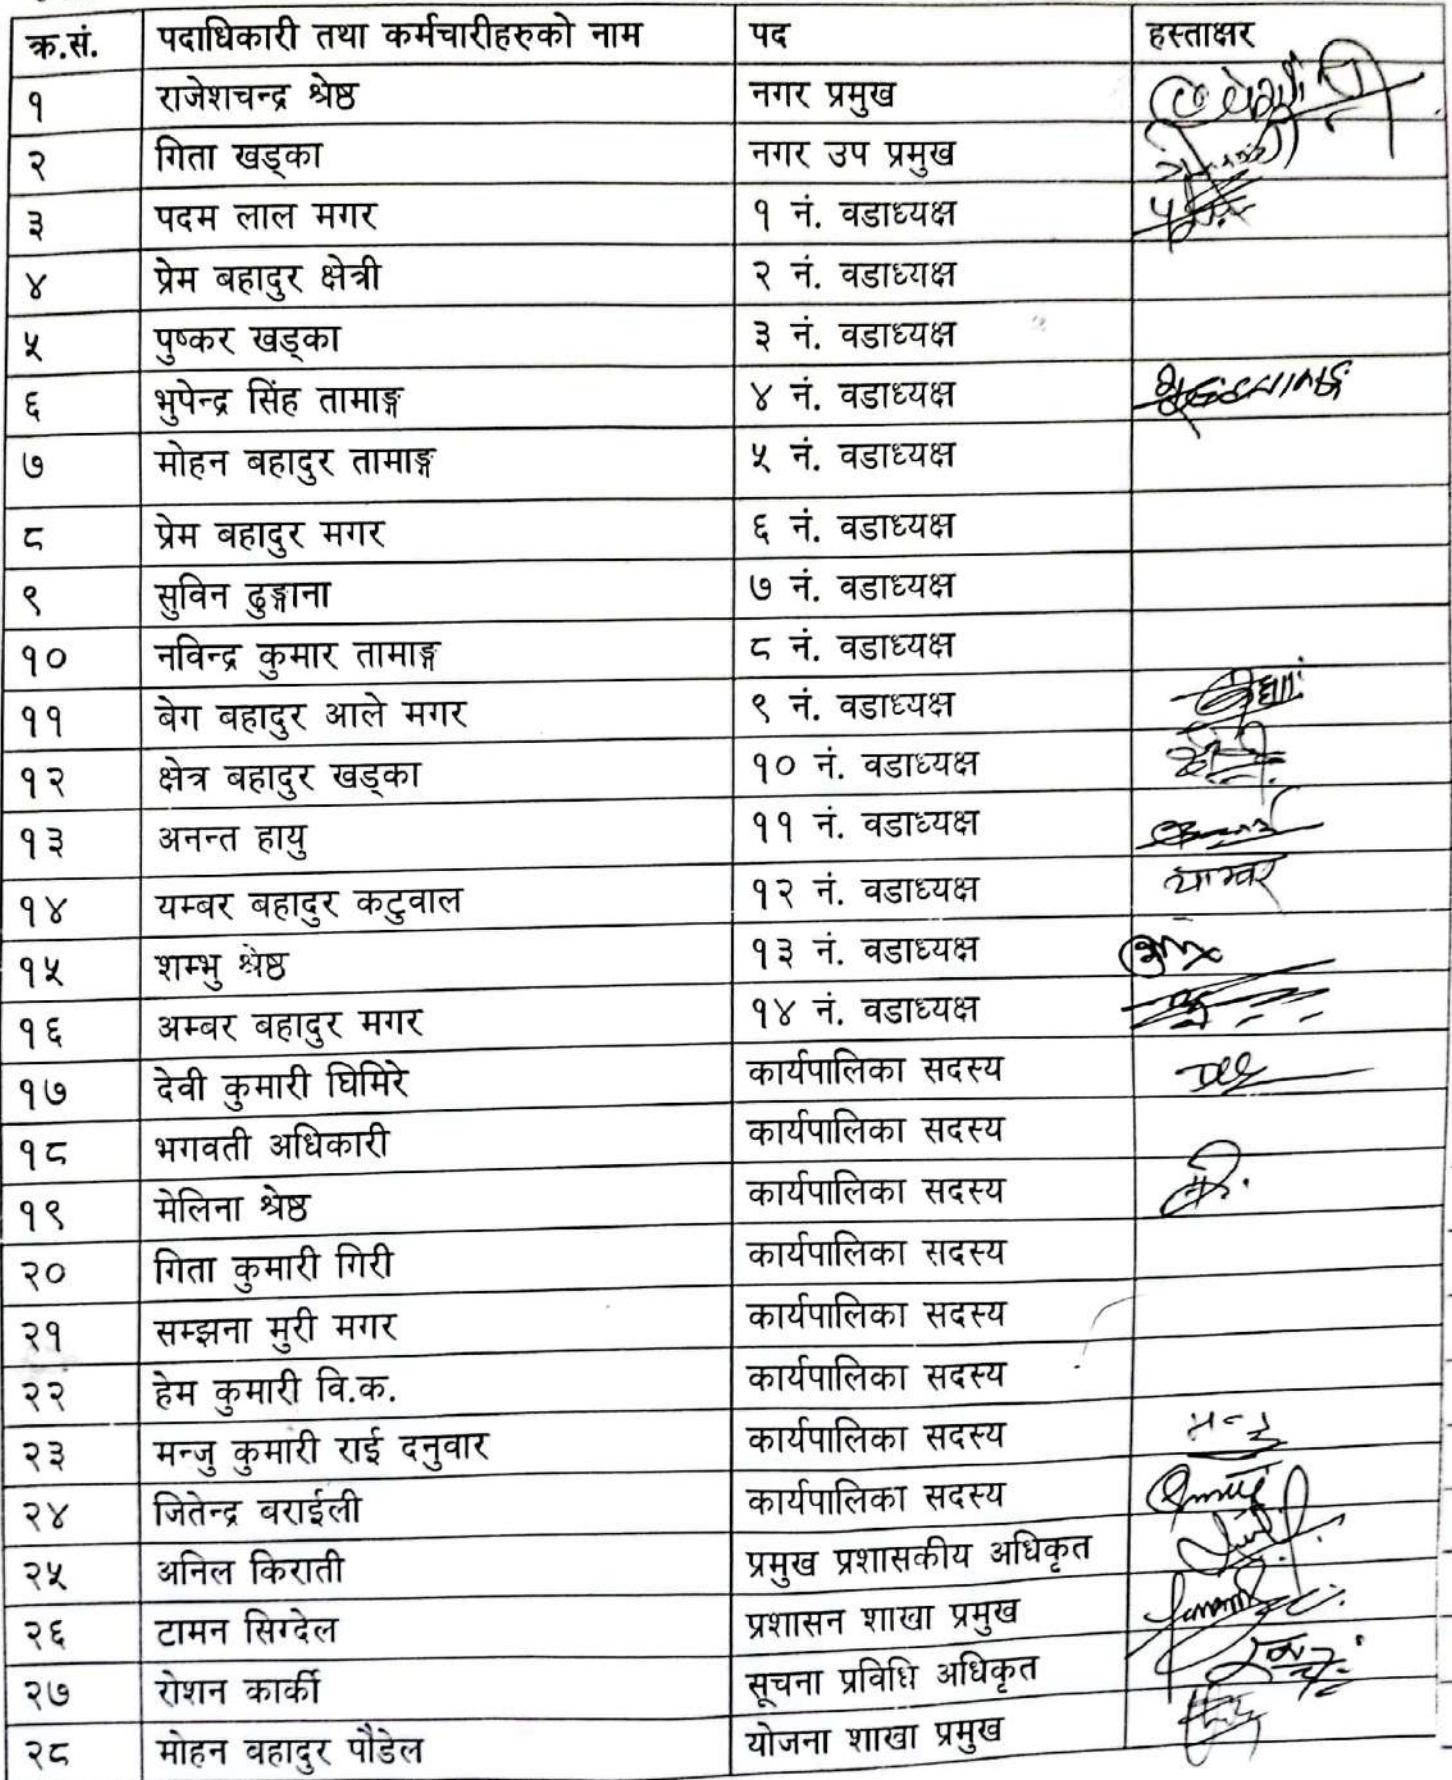 क्र.सं. पदाधिकारी तथा कर्मचारीहरुको नाम पद हस्ताक्षर
१ राजेशचन्द्र श्रेष्ठ नगर प्रमुख
२ गिता खड्का नगर उप प्रमुख
३ पदम लाल मगर १ नं. वडाध्यक्ष
४ प्रेम बहादुर क्षेत्री २ नं. वडाध्यक्ष
५ पुष्कर खड्का ३ नं. वडाध्यक्ष
६ भुपेन्द्र सिंह तामाङ्ग ४ नं. वडाध्यक्ष
७ मोहन बहादुर तामाङ्ग ५ नं. वडाध्यक्ष
८ प्रेम बहादुर मगर ६ नं. वडाध्यक्ष
९ सुविन ढुङ्गाना ७ नं. वडाध्यक्ष
१० नविन्द्र कुमार तामाङ्ग ८ नं. वडाध्यक्ष
११ बेग बहादुर आले मगर ९ नं. वडाध्यक्ष
१२ क्षेत्र बहादुर खड्का १० नं. वडाध्यक्ष
१३ अनन्त हायु ११ नं. वडाध्यक्ष
१४ यम्बर बहादुर कटुवाल १२ नं. वडाध्यक्ष याम्वर
१५ शम्भु श्रेष्ठ १३ नं. वडाध्यक्ष
१६ अम्बर बहादुर मगर १४ नं. वडाध्यक्ष
१७ देवी कुमारी घिमिरे कार्यपालिका सदस्य
१८ भगवती अधिकारी कार्यपालिका सदस्य
१९ मेलिना श्रेष्ठ कार्यपालिका सदस्य
२० गिता कुमारी गिरी कार्यपालिका सदस्य
२१ सम्झना मुरी मगर कार्यपालिका सदस्य
२२ हेम कुमारी वि.क. कार्यपालिका सदस्य
२३ मन्जु कुमारी राई दनुवार कार्यपालिका सदस्य
२४ जितेन्द्र बराईली कार्यपालिका सदस्य
२५ अनिल किराती प्रमुख प्रशासकीय अधिकृत
२६ टामन सिग्देल प्रशासन शाखा प्रमुख
२७ रोशन कार्की सूचना प्रविधि अधिकृत
२८ मोहन बहादुर पौडेल योजना शाखा प्रमुख